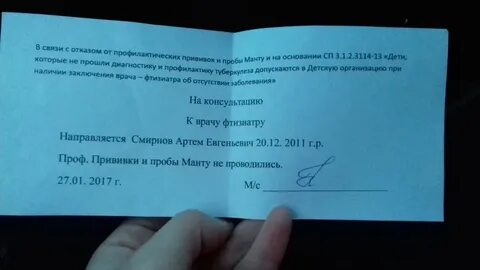 В связи с отказом от профилактических прививок и пробы Манту и на основании СП 3.1.2.3114-13 «Дети,
которые не прошли диагностику и профилактику туберкулеза допускаются в Детскую организацию при
наличии заключения врача – фтизиатра об отсутствии заболевания»
На консультацию
К врачу фтизиатру
Направляется Смирнов Артем Евгеньевич 20.12. 2011 г.р.
Проф. Прививки и пробы Манту не проводились.
27.01. 2017 г. М/с